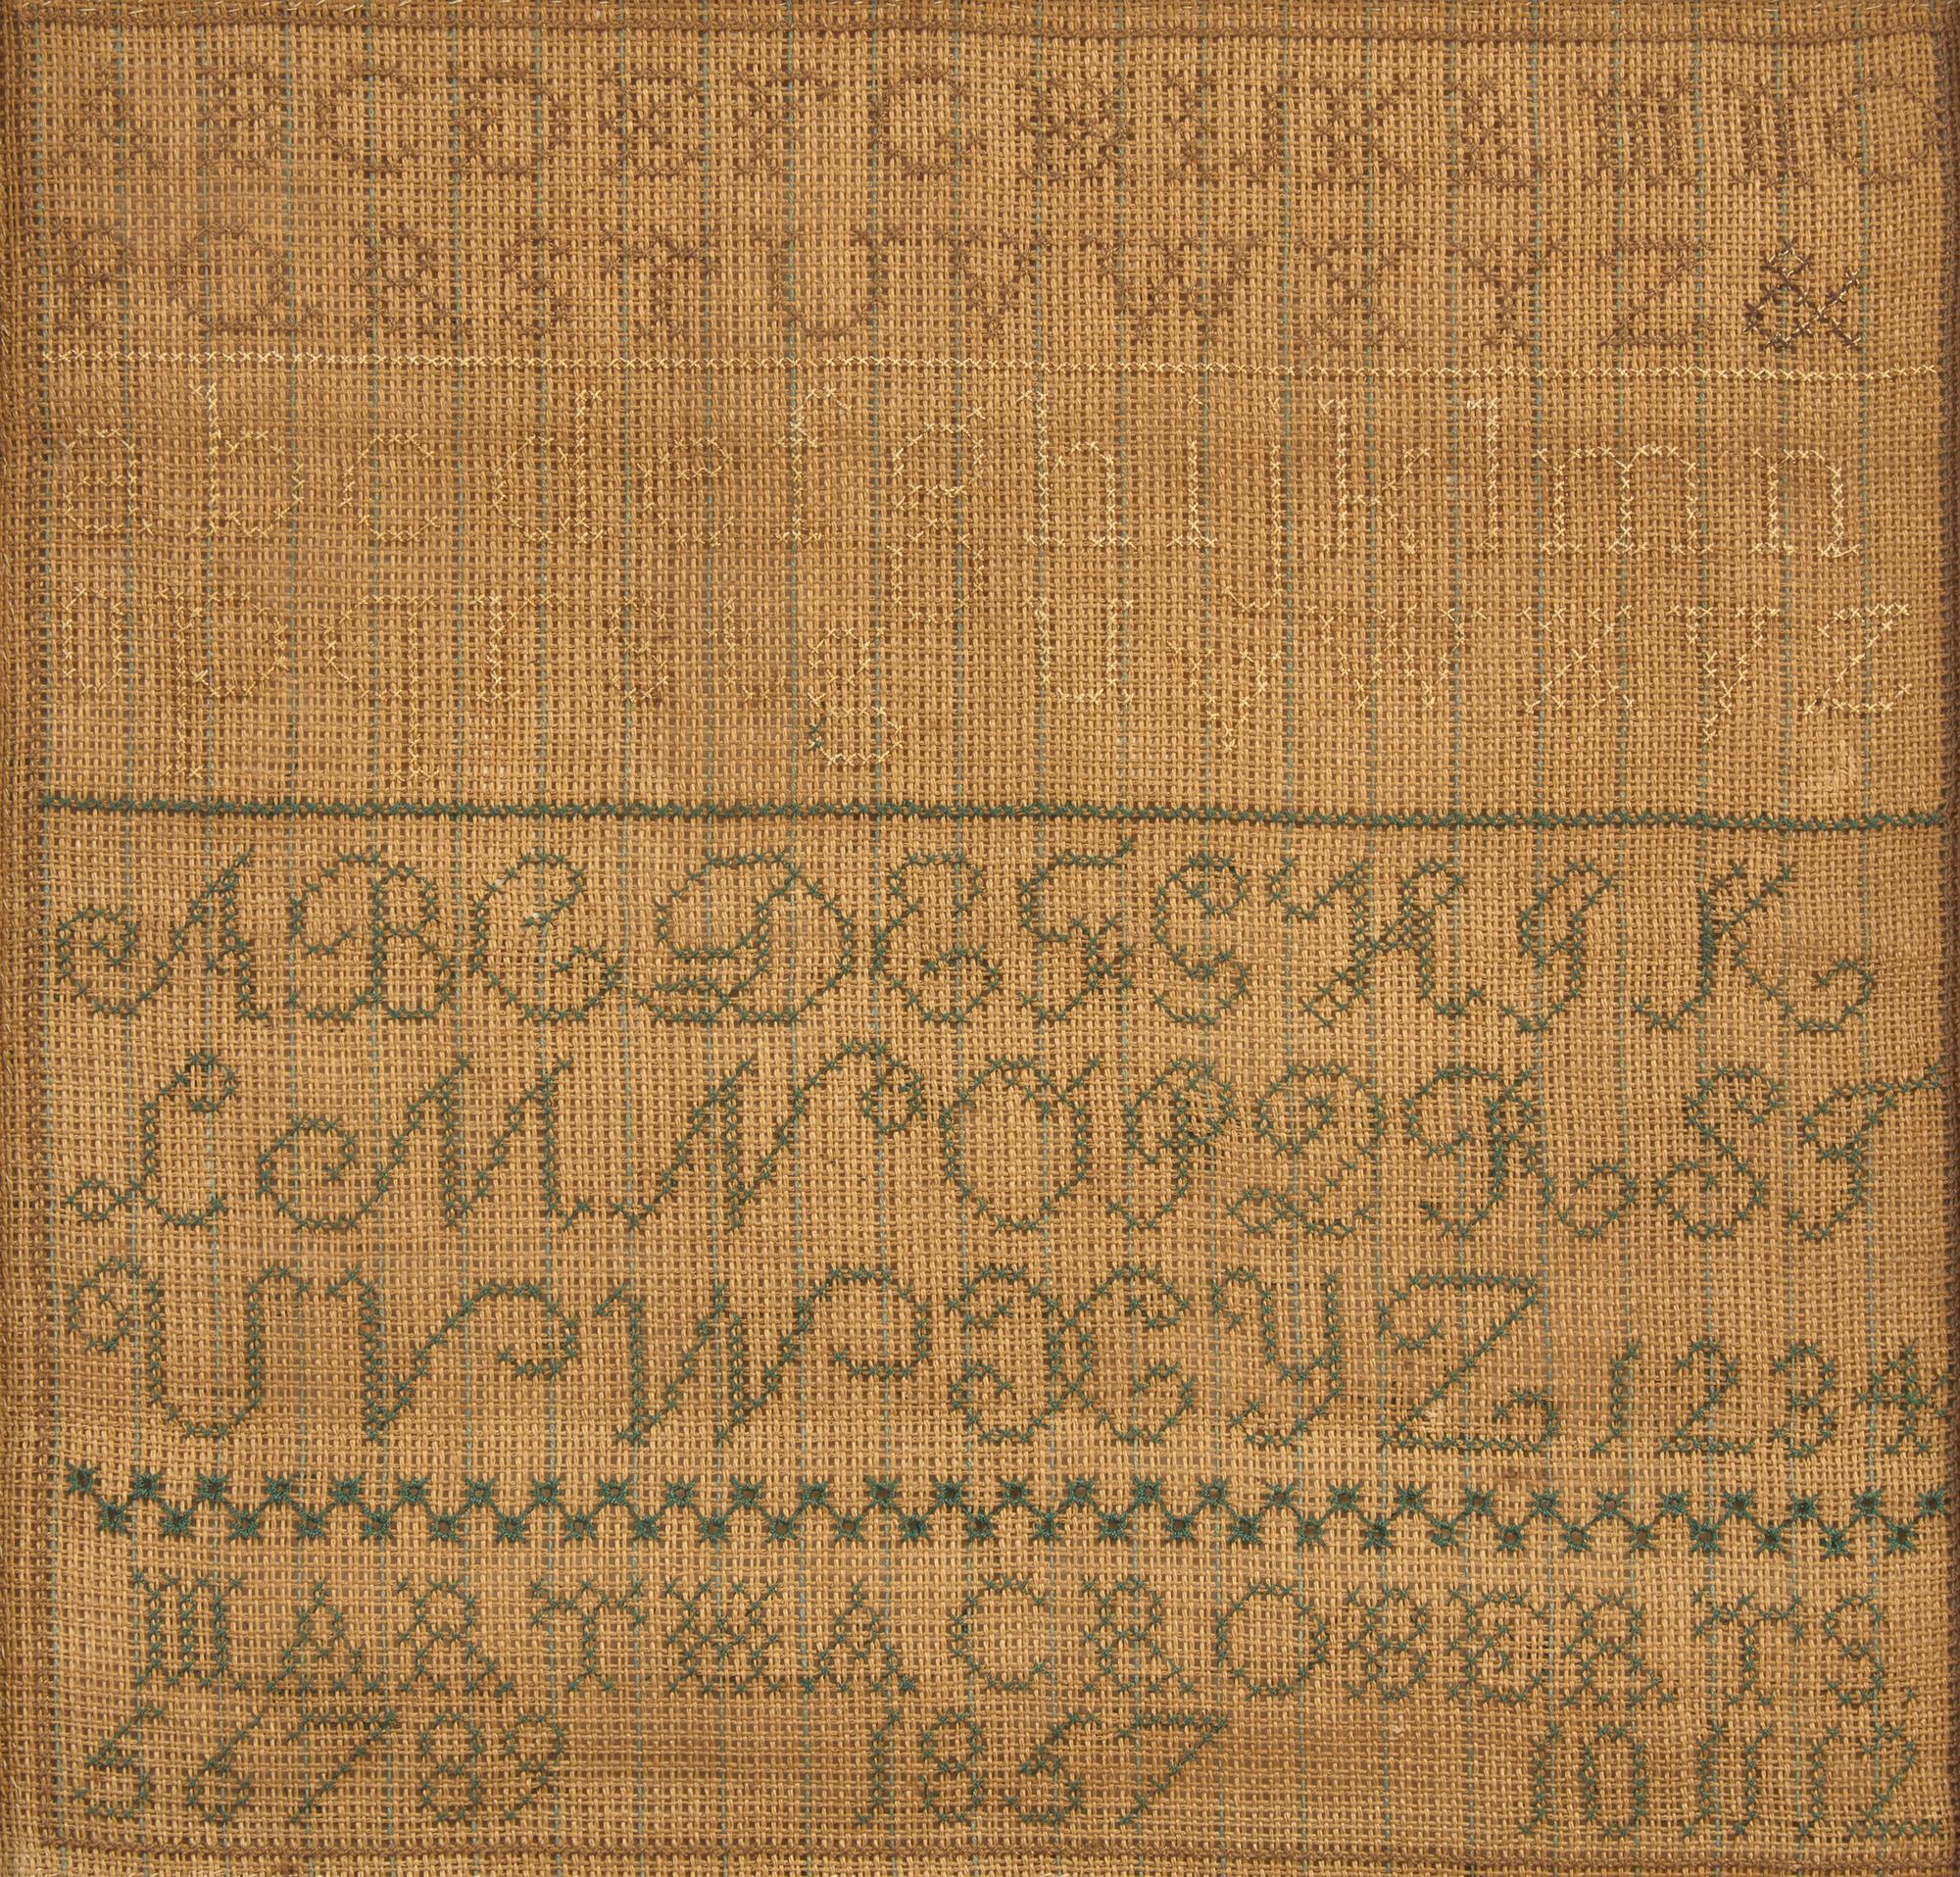 A B C D E F G H I J K L M N O
P Q R S T U V W X Y Z &
a b c d e f g h i j k l m n
o p q r s t u v w x y z
A B C D E F G H J K
L M N O P Q R S T
U V W X Y Z 1 2 3 4
MARTHA C ROBERTS
5 6 7 8 9 1857 10 11 12